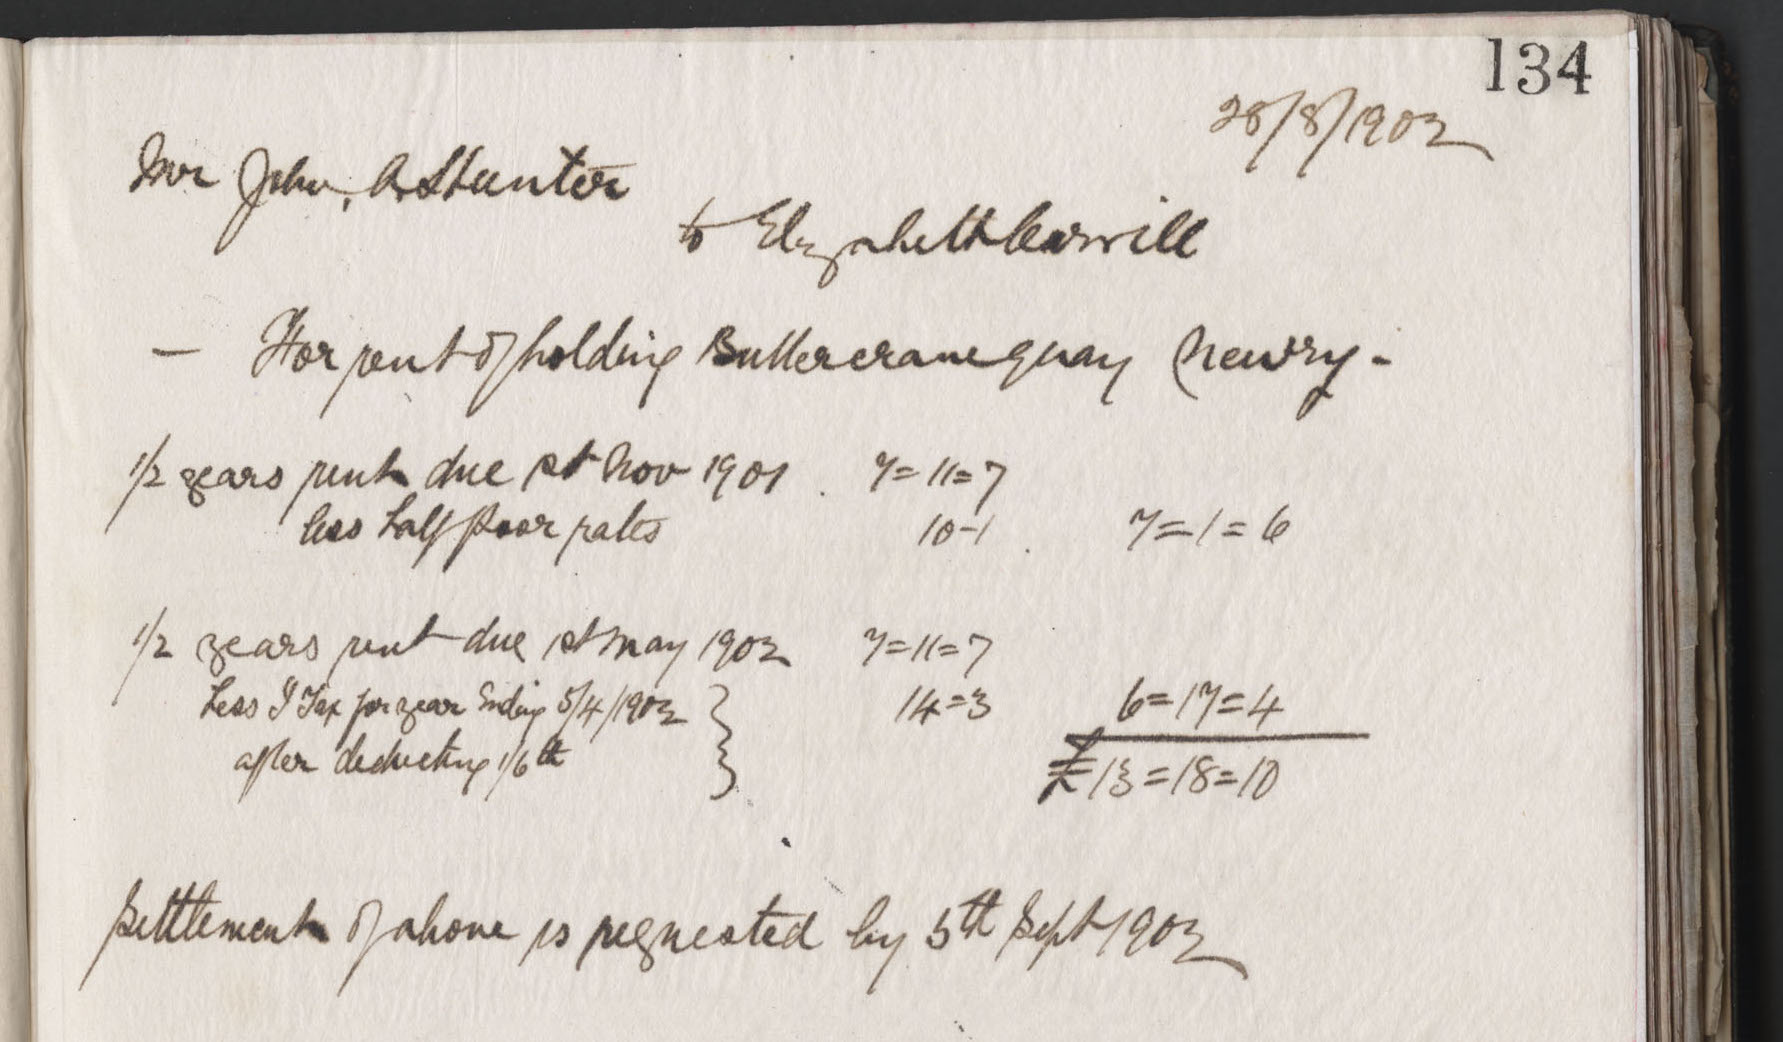 134
28/8/1902
Mr John, A Hunter
to Elizabeth Carvill
— For rent of holding Buttercrane quay Newry -
1/2 years rent due 1st Nov 1901 . 7=11=7
less half poor rates 10-1 . 7=1=6
1/2 years rent due 1st May 1902 7=11=7
Less I Tax for year Ending 5/4/1902 } 14=3 6=17=4
after deducting 1/6th £13=18=10
Settlement of above is requested by 5th Sept 1902